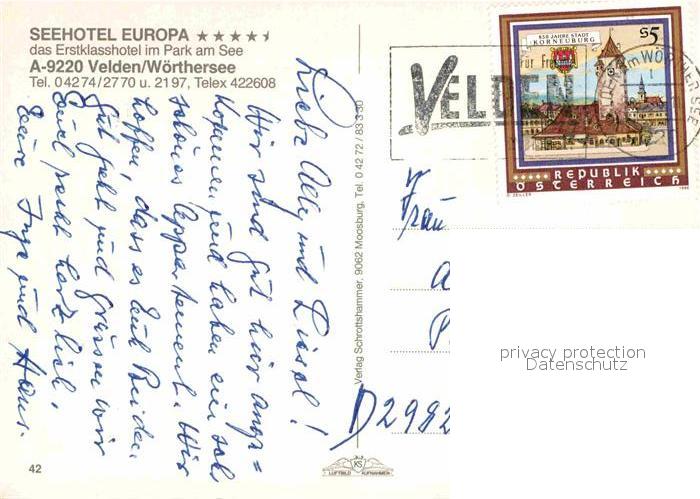 SEEHOTEL EUROPA ★★★★★
das Erstklasshotel im Park am See
A-9220 Velden/Wörthersee
Tel. 04274/2770 u. 2197, Telex 422608
Liebe Adly und Liesel!
Wir sind gut hier ange=
kommen, und haben ein sehr
schönes Appartement. Wir
hoffen, dass es Euch Beiden
gut geht und grüssen wir
Euch recht herzlich.
Eure Inge und Hans.
42
Verlag Schrottshammer, 9062 Moosburg, Tel. 0 42 72 / 83 3 30
LUFTBILD KS AUFNAHMEN
VELDEN
850 JAHRE STADT
KORNEUBURG
S5
REPUBLIK
ÖSTERREICH
Frau
D2982
privacy protection
Datenschutz